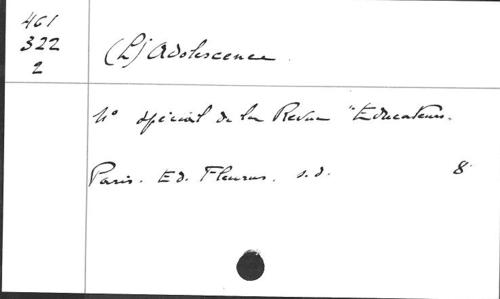 461
322
2
(L') Adolescence.
N° spécial de la Revue "Educateurs.
Paris. Ed. Fleurus. s.d. 8